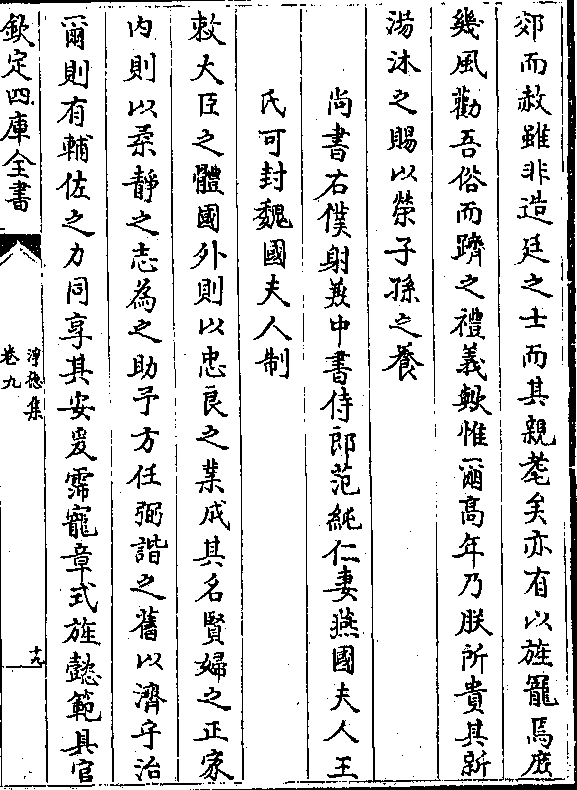 郊而赦雖非造廷之士而其親耄矣亦有以旌寵焉庶
幾風勸吾俗而躋之禮義歟惟爾高年乃朕所貴其新
湯沐之賜以榮子孫之養
尚書右僕射兼中書侍郎范純仁妻燕國夫人王
氏可封魏國夫人制
敕大臣之體國外則以忠良之業成其名賢婦之正家
内則以柔靜之志為之助予方任弼諧之舊以濟乎治
爾則有輔佐之力同享其安爰霈寵章式旌懿範具官
欽定四庫全書
淨德集
卷九
十九